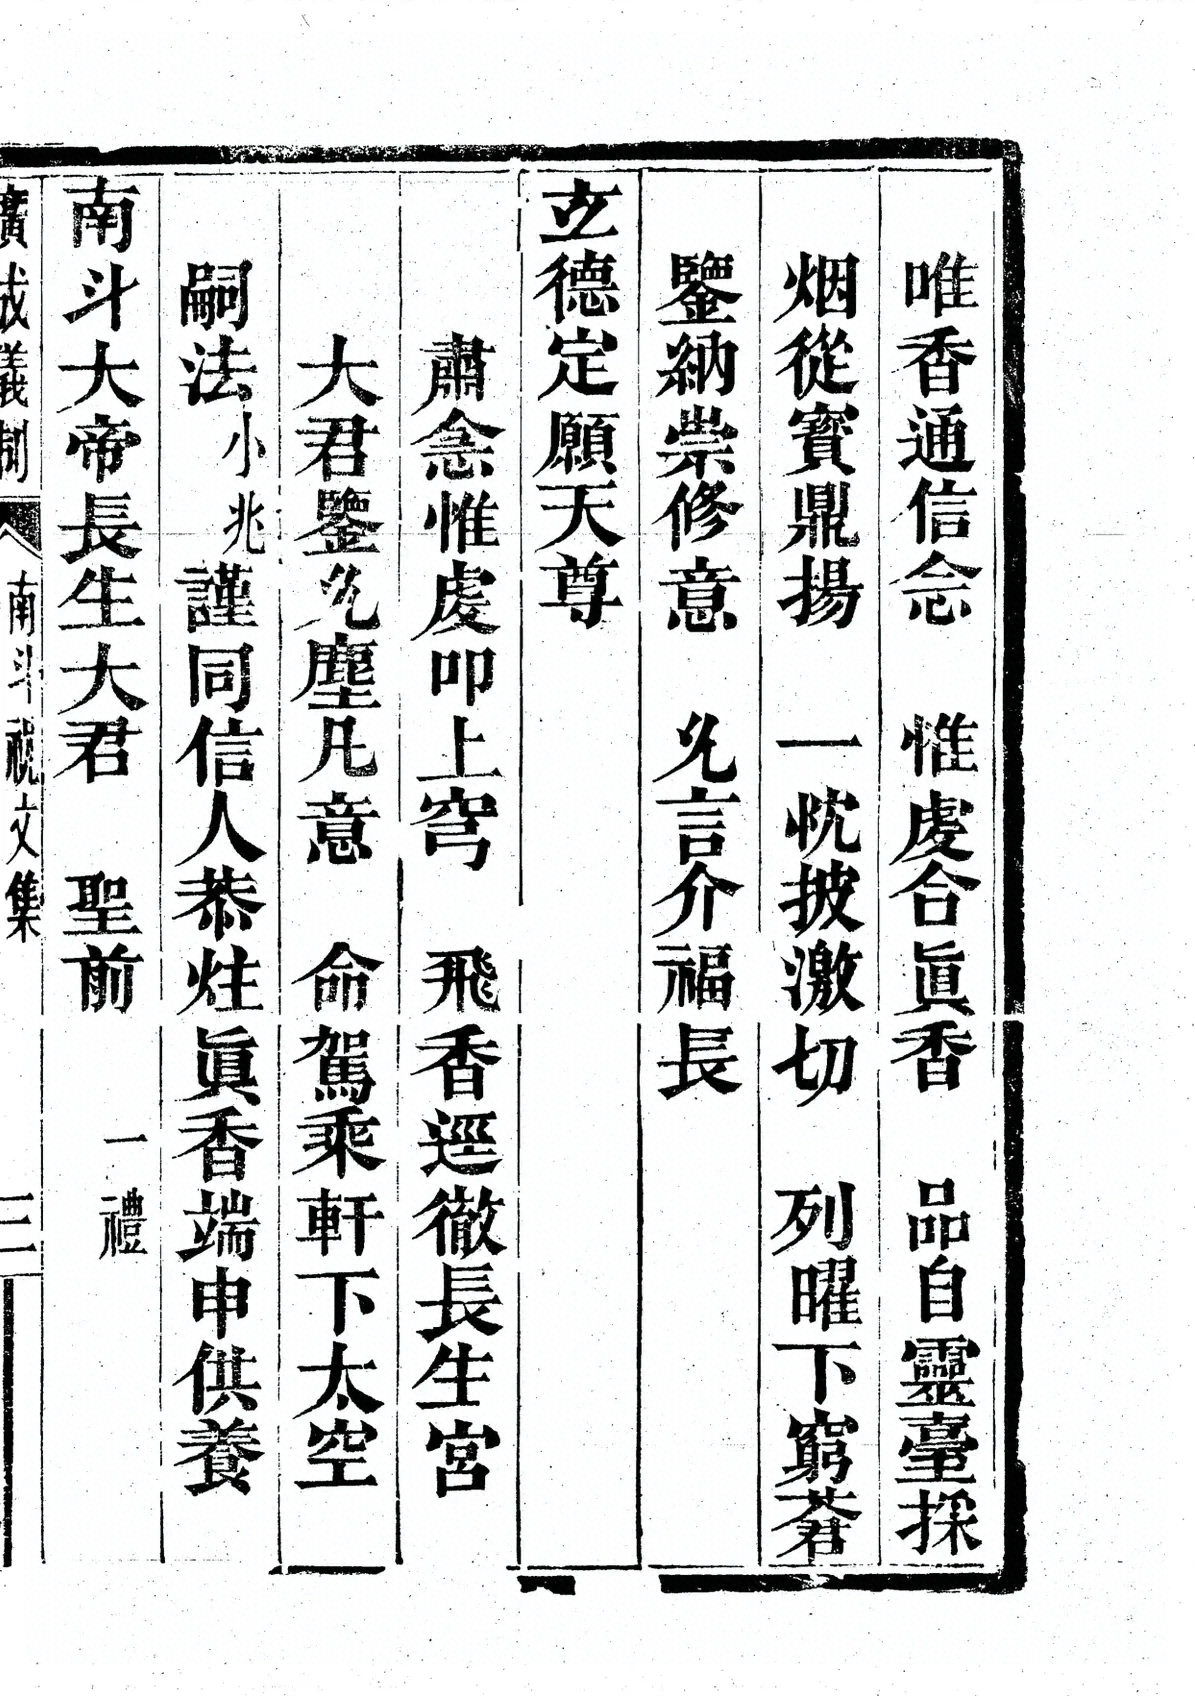 唯香通信念　惟虔合眞香　品自靈臺採
烟從寶鼎揚　一忱披激切　列曜下窮蒼
鑒納崇修意　凢言介福長
立德定願天尊
肅念惟虔叩上穹　飛香逕徹長生宮
大君鑒凢塵凡意　命駕乘軒下太空
嗣法小兆謹同信人恭炷眞香端申供養
南斗大帝長生大君　聖前　一禮
廣成義制　南斗祝文集　三